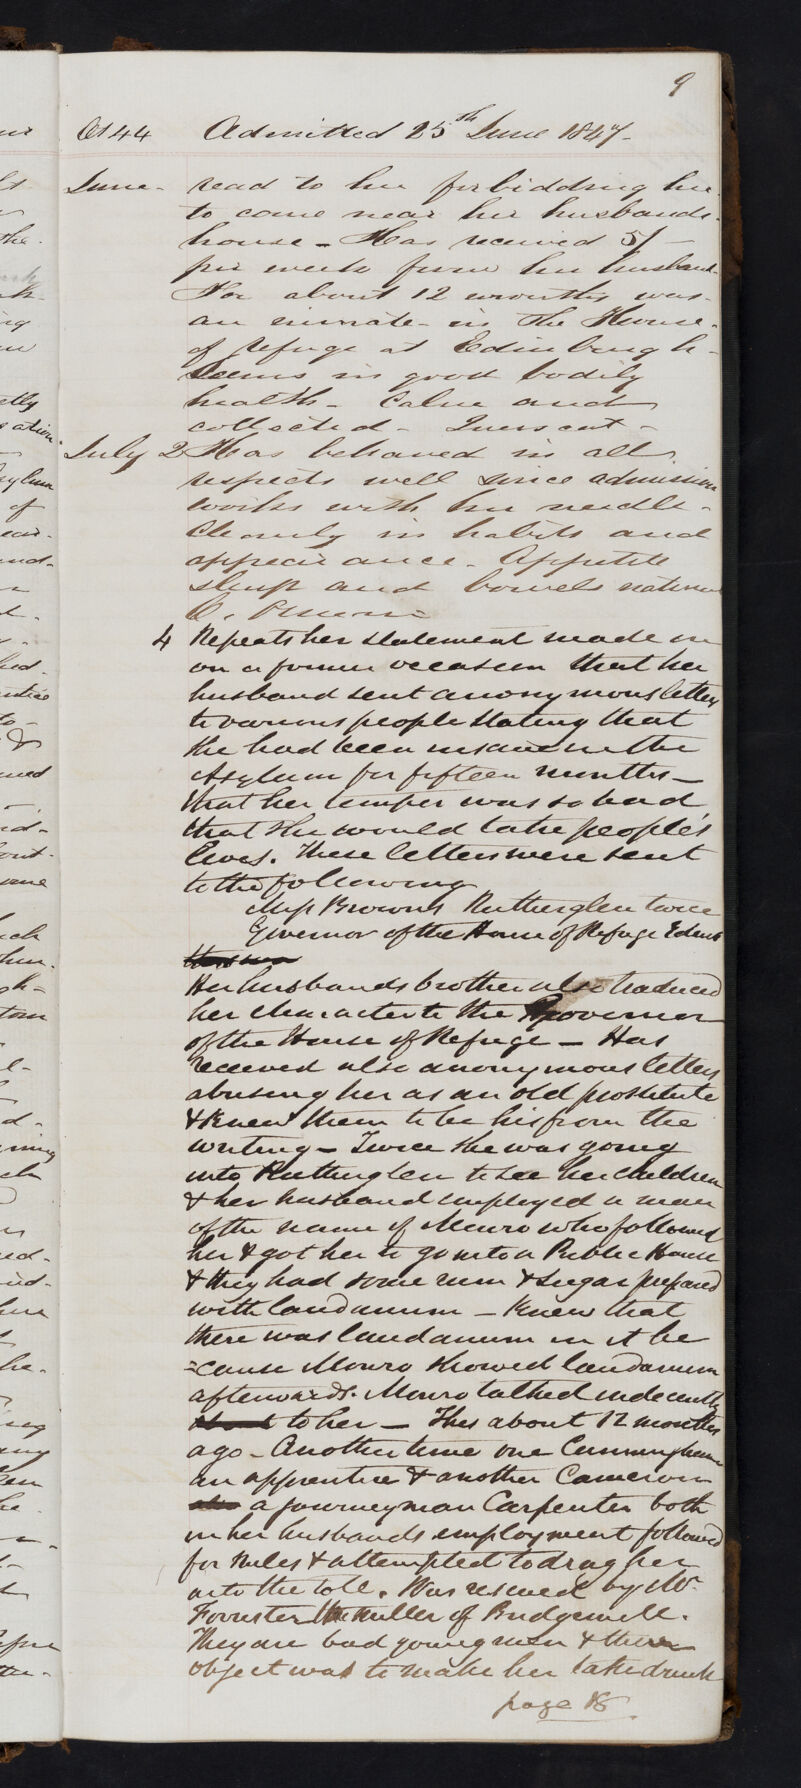 9
Æt 44 Admitted 25th June 1847-
June- read to her forbidding her
to come near her husbands
house - Has received 5/-
per week from her husband-
For about 12 months was
an inmate in the House
of refuge at Edinburgh-
Seems in good bodily
health- Calm and
collected-
July 2 Has behaved in all
respects well since admission
works with her needle-
Cleanly in habits and
appearance- Appetite
sleep and bowels natural

4 Repeats her statement made
on a former occasion that her
husband sent anonymous letters
to various people stating that
she had been insane in the
Asylum for fifteen months-
that her temper was so bad
that she would take people's
lives. These letters were sent
to the following
Mrs Browns Rutherglen twice
Governor of the House of Refuge Edinb
Her husbands brother also traduced
her character to the Governor
of the House of Refuge - Has
received also anonymous letters
abusing her as an old prostitute
& knew them to be his from the
writing - Twice she was going
into Rutherglen to see her children
& her husband employed a man
of the name of Munro who followed
her & got her to go into a Public House
& they had some rum & sugar prepared
with laudanum - Knew that
there was laudanum in it be
=cause Monro showed laudanum
afterwards. Monro talked indecently
to her - This about 12 months
ago - Another time one Cunningham
an apprentice & another Cameron
a journeyman Carpenter both
in her husbands employment followed
for miles & attempted to drag her
into the toll. Was rescued by Mr
Forrester the Miller of Bridgemill.
They are bad young men & their
object was to make her take drink
page 18